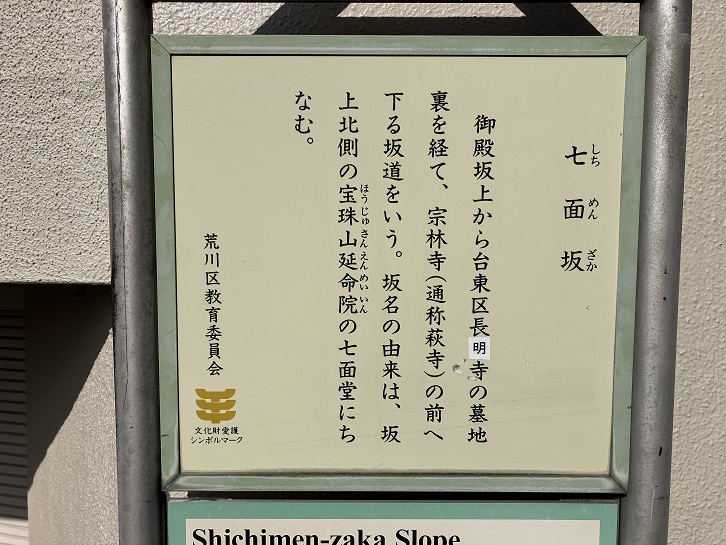 七面坂
しちめんざか
御殿坂上から台東区長明寺の墓地
裏を経て、宗林寺(通称萩寺)の前へ
下る坂道をいう。坂名の由来は、坂
上北側の宝珠山延命院の七面堂にち
ほうじゅさんえんめいいん
なむ。
荒川区教育委員会
文化財愛護
シンボルマーク
Shichimen-zaka Slope